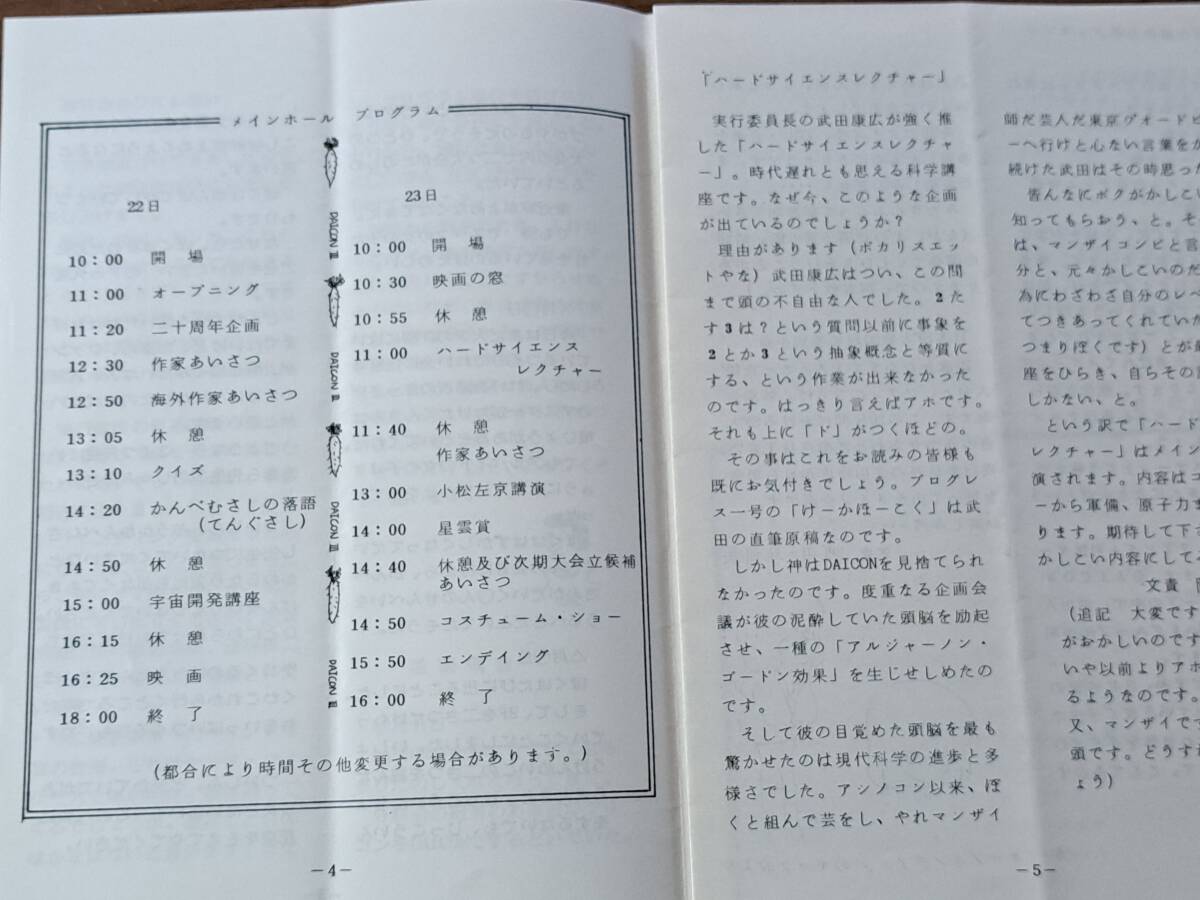 メインホール プログラム
22日
10:00 開場
11:00 オープニング
11:20 二十周年企画
12:30 作家あいさつ
12:50 海外作家あいさつ
13:05 休憩
13:10 クイズ
14:20 かんべむさしの落語
(てんぐさし)
14:50 休憩
15:00 宇宙開発講座
16:15 休憩
16:25 映画
18:00 終了
DAICON Ⅲ
DAICON Ⅲ
DAICON Ⅲ
DAICON Ⅲ
23日
10:00 開場
10:30 映画の窓
10:55 休憩
11:00 ハードサイエンス
レクチャー
11:40 休憩
作家あいさつ
13:00 小松左京講演
14:00 星雲賞
14:40 休憩及び次期大会立候補
あいさつ
14:50 コスチューム・ショー
15:50 エンデイング
16:00 終了
(都合により時間その他変更する場合があります。)
-4-
「ハードサイエンスレクチャー」
実行委員長の武田康広が強く推
した「ハードサイエンスレクチャ
ー」。時代遅れとも思える科学講
座です。なぜ今、このような企画
が出ているのでしょうか?
理由があります(ポカリスエッ
トやな)武田康広はつい、この間
まで頭の不自由な人でした。2た
す3は?という質問以前に事象を
2とか3という抽象概念と等質に
する、という作業が出来なかった
のです。はっきり言えばアホです。
それも上に「ド」がつくほどの。
その事はこれをお読みの皆様も
既にお気付きでしょう。プログレ
ス一号の「けーかほーこく」は武
田の直筆原稿なのです。
しかし神はDAICONを見捨てられ
なかったのです。度重なる企画会
議が彼の泥酔していた頭脳を励起
させ、一種の「アルジャーノン・
ゴードン効果」を生じせしめたの
です。
そして彼の目覚めた頭脳を最も
驚かせたのは現代科学の進歩と多
様さでした。アシノコン以来、ぼ
くと組んで芸をし、やれマンザイ
師だ芸人だ東京ヴォードビ
ーへ行けと心ない言葉をか
続けた武田はその時思った
皆んなにボクがかしこ
知ってもらおう、と。そ
は、マンザイコンビと言
分と、元々かしこいのだ
為にわざわざ自分のレベ
てつきあってくれていた
つまりぼくです)とが最
座をひらき、自らその
しかない、と。
という訳で「ハード
レクチャー」はメイン
演されます。内容はコ
ーから軍備、原子力ま
ります。期待して下さ
かしとい内容にしてみ
文責
(追記 大変です
がおかしいのです
いや以前よりアホ
るようなのです。
又、マンザイでで
頭です。どうすれ
ょう)
-5-